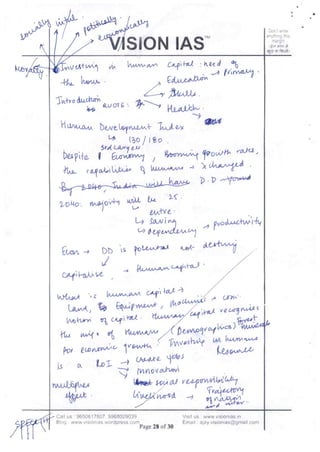 socially initial politically economically
VISION IAS™
Don't write anything this margin
Morally Investing in human capital : need of
the hour. Education → Primary.
Skills.
Introduction QUOTE: Health.
Human Development Index
130/180.
3rd largest
Despite Economy, Booming growth rate,
the capabilities of humans → x changed.
By 2040, India will have D.D
2040: majority will be 25.
entre.
↳ saving
↳ dependency → productivity
Econ → DD is potential not destiny
Capitalise → Human capital.
What is human capital →
Land, Equipment, machines → con.
notion of capital. Human capital recognises
the of Humans (Demographics)
for economic growth. Investing in humans
is a RoI → create jobs Resource
→ innovation
multiplier social responsibility
effect. livelihood → Trajectory
of nation
Call us : 9650617807, 9968029039 Visit us : www.visionias.in
Blog : www.visionias.wordpress.com Email : apiy.visionias@gmail.com
Page 28 of 30